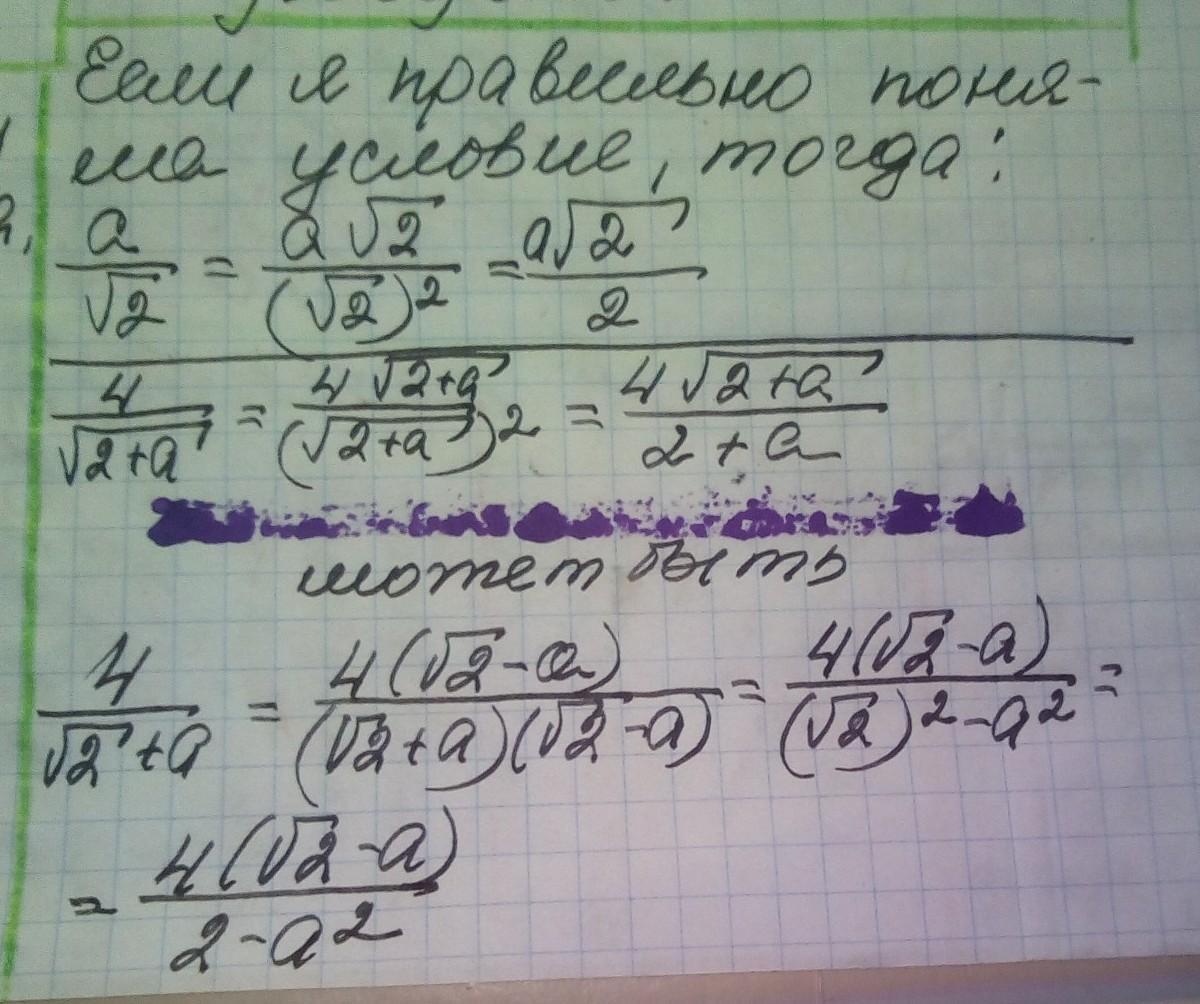 Если я правильно поня-
ла условие, тогда:
a/√2 = a√2/(√2)² = a√2/2
4/√(2+a) = 4√(2+a)/(√(2+a))² = 4√(2+a)/(2+a)
может быть
4/(√2+a) = 4(√2-a)/((√2+a)(√2-a)) = 4(√2-a)/((√2)²-a²) =
= 4(√2-a)/(2-a²)